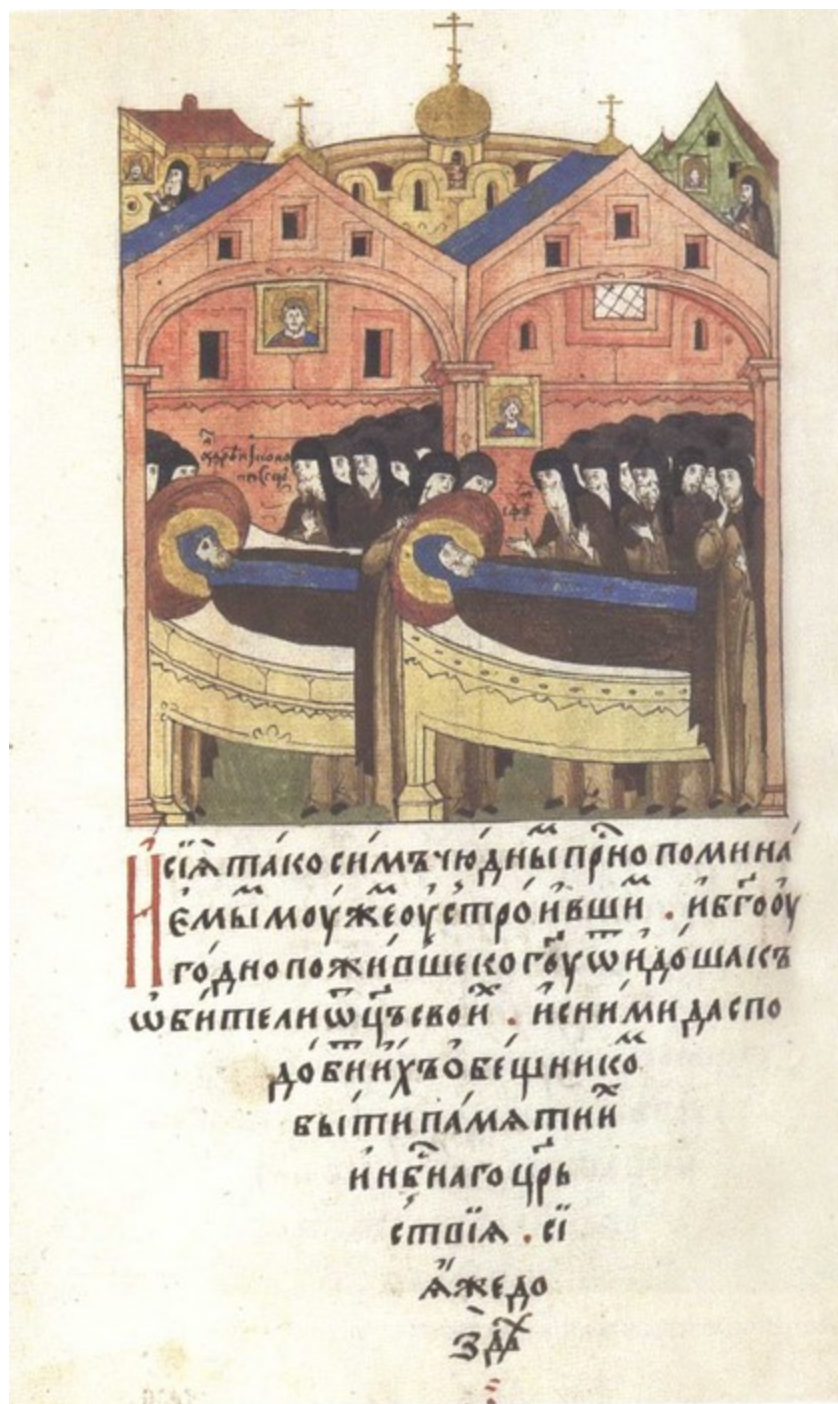 И сїѧ тако симъ чюдны прно помина
емы моужеѹ оустроивши . и бгооу
годно поживше ко гоу ѿидоша и съ
ѡбители ѿцъ свои . и с ними да спо
добї ихъ обещнико
быти памѧти и
и нбнаго црь
ствїѧ . сї
ѧже до
здѣ